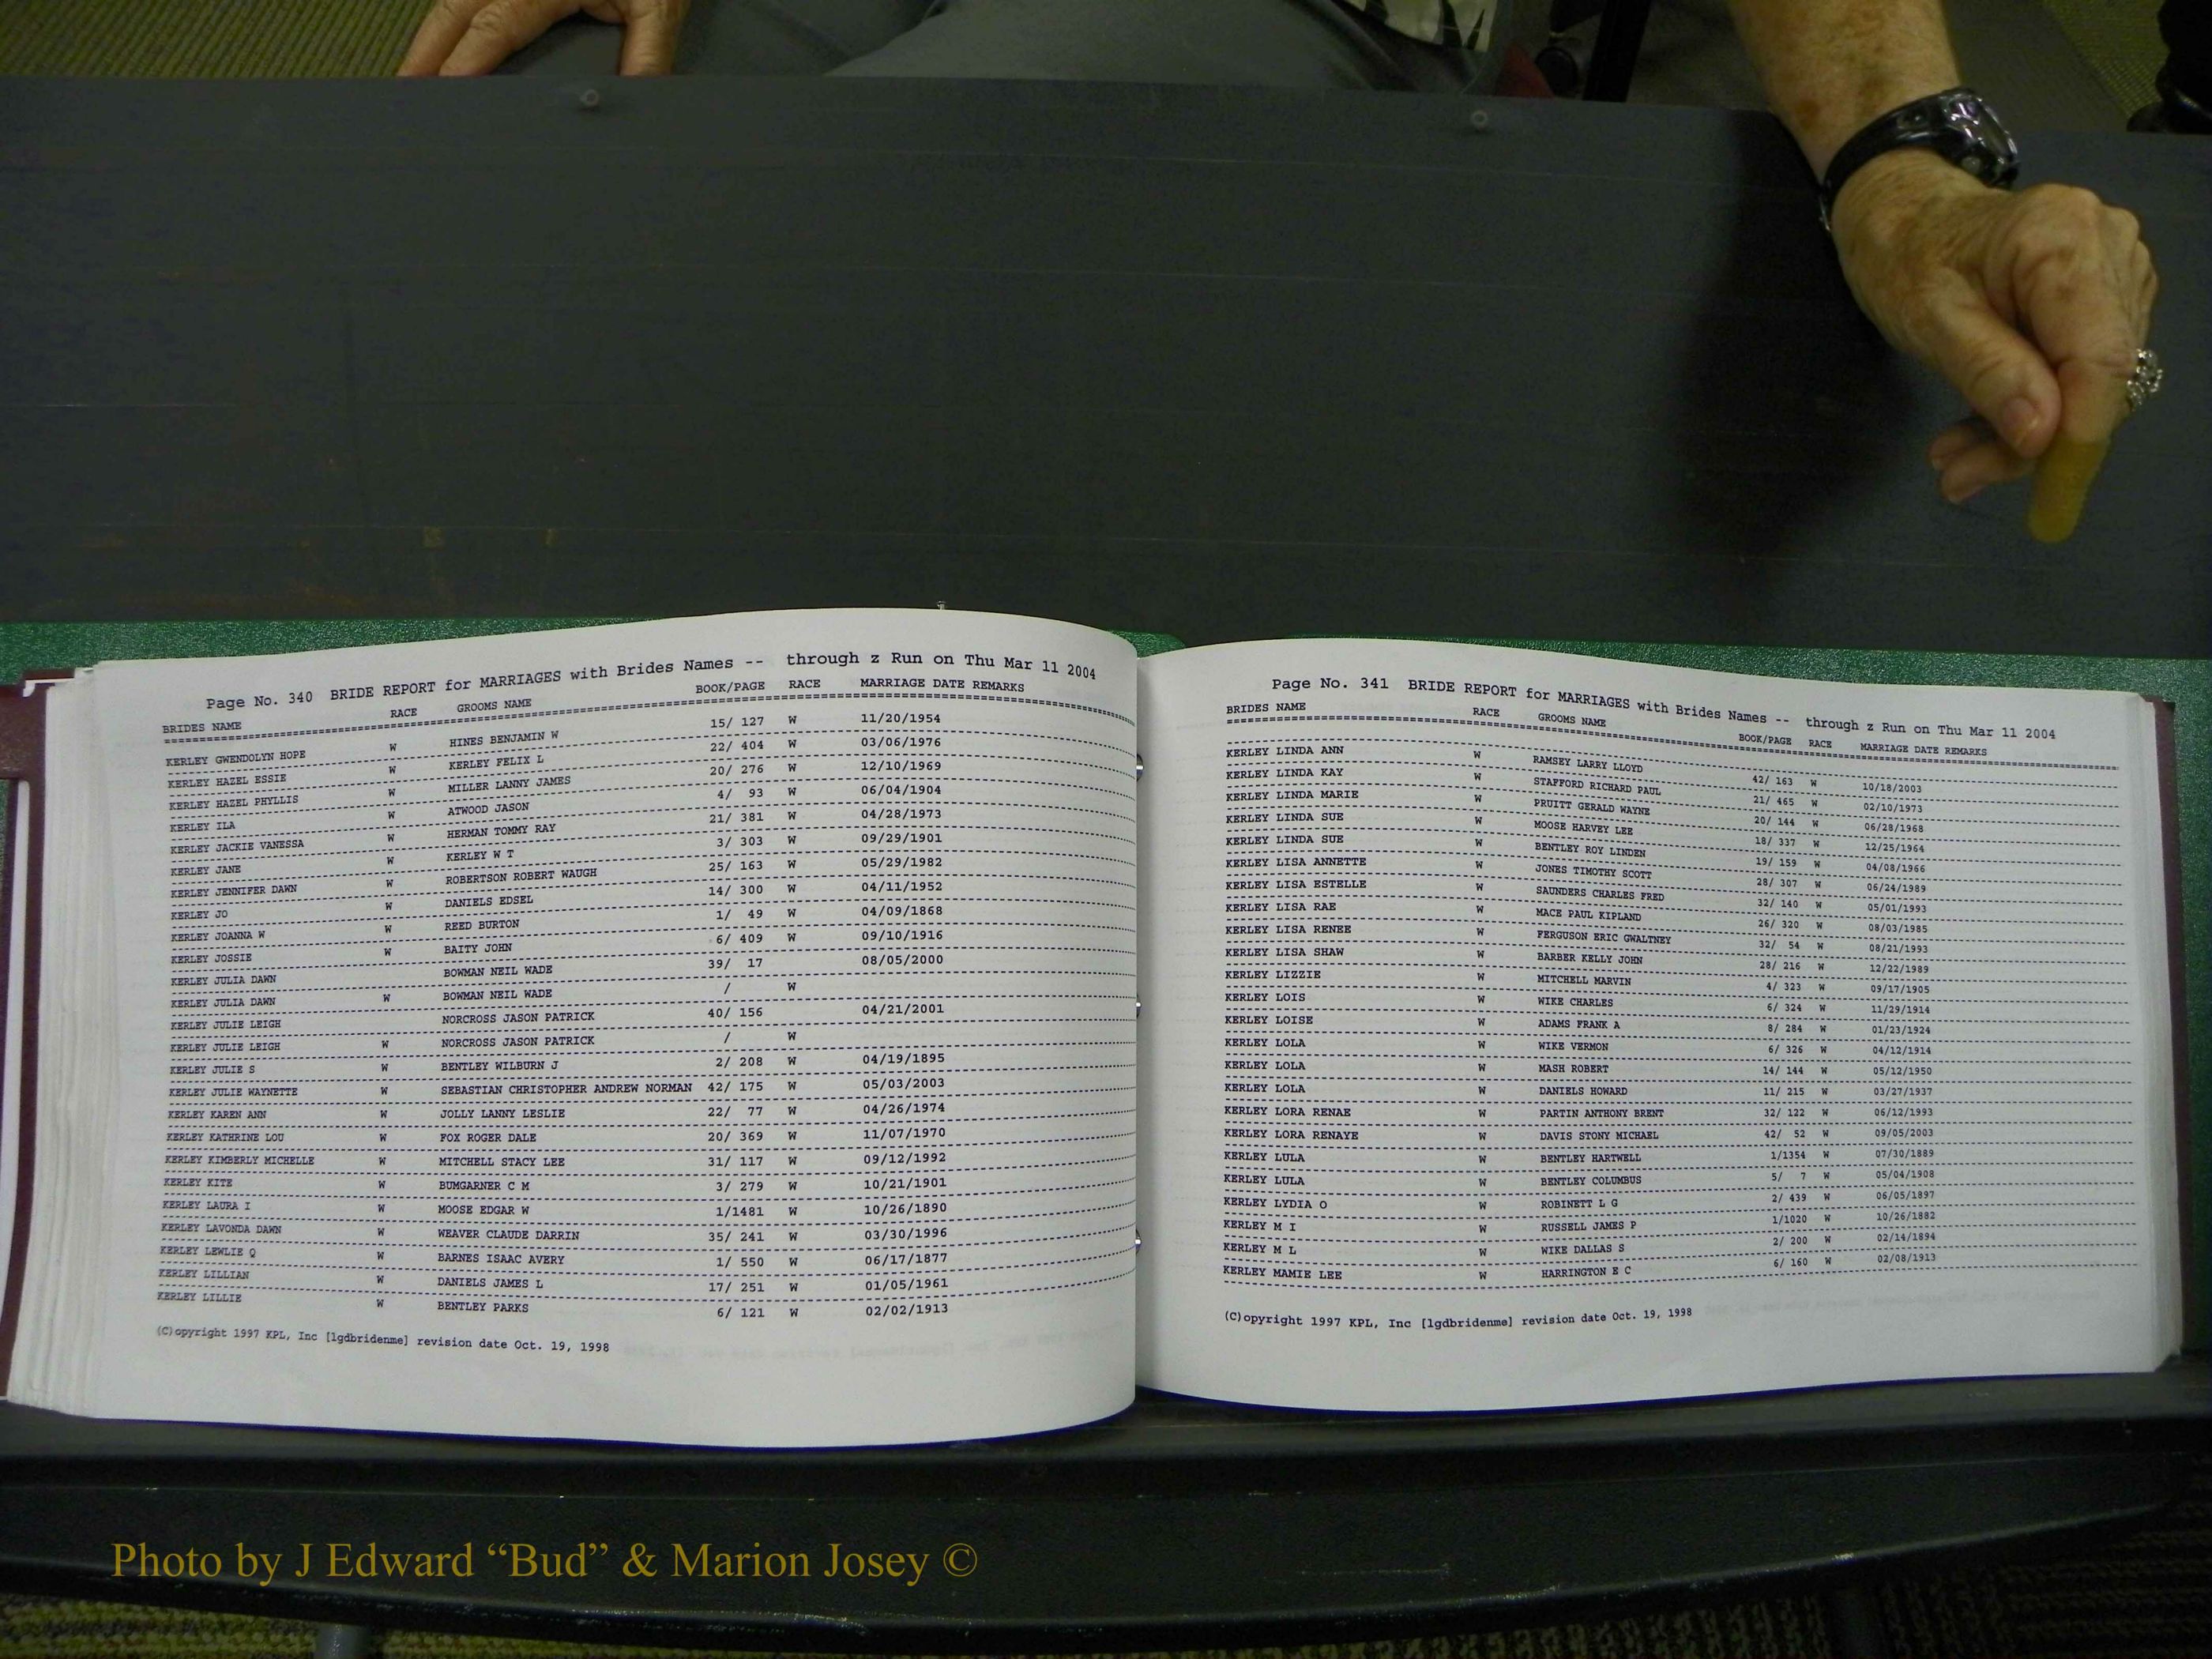 Page No. 340 BRIDE REPORT for MARRIAGES with Brides Names -- through z Run on Thu Mar 11 2004
BRIDES NAME RACE GROOMS NAME BOOK/PAGE RACE MARRIAGE DATE REMARKS
KERLEY GWENDOLYN HOPE W HINES BENJAMIN W 15/ 127 W 11/20/1954
KERLEY HAZEL ESSIE W KERLEY FELIX L 22/ 404 W 03/06/1976
KERLEY HAZEL PHYLLIS W MILLER LANNY JAMES 20/ 276 W 12/10/1969
KERLEY ILA W ATWOOD JASON 4/ 93 W 06/04/1904
KERLEY JACKIE VANESSA W HERMAN TOMMY RAY 21/ 381 W 04/28/1973
KERLEY JANE W KERLEY W T 3/ 303 W 09/29/1901
KERLEY JENNIFER DAWN W ROBERTSON ROBERT WAUGH 25/ 163 W 05/29/1982
KERLEY JO W DANIELS EDSEL 14/ 300 W 04/11/1952
KERLEY JOANNA W W REED BURTON 1/ 49 W 04/09/1868
KERLEY JOSSIE W BAITY JOHN 6/ 409 W 09/10/1916
KERLEY JULIA DAWN BOWMAN NEIL WADE 39/ 17 08/05/2000
KERLEY JULIA DAWN W BOWMAN NEIL WADE / W
KERLEY JULIE LEIGH NORCROSS JASON PATRICK 40/ 156 04/21/2001
KERLEY JULIE LEIGH W NORCROSS JASON PATRICK / W
KERLEY JULIE S W BENTLEY WILBURN J 2/ 208 W 04/19/1895
KERLEY JULIE WAYNETTE W SEBASTIAN CHRISTOPHER ANDREW NORMAN 42/ 175 W 05/03/2003
KERLEY KAREN ANN W JOLLY LANNY LESLIE 22/ 77 W 04/26/1974
KERLEY KATHRINE LOU W FOX ROGER DALE 20/ 369 W 11/07/1970
KERLEY KIMBERLY MICHELLE W MITCHELL STACY LEE 31/ 117 W 09/12/1992
KERLEY KITE W BUMGARNER C M 3/ 279 W 10/21/1901
KERLEY LAURA I W MOOSE EDGAR W 1/1481 W 10/26/1890
KERLEY LAVONDA DAWN W WEAVER CLAUDE DARRIN 35/ 241 W 03/30/1996
KERLEY LEWLIE Q W BARNES ISAAC AVERY 1/ 550 W 06/17/1877
KERLEY LILLIAN W DANIELS JAMES L 17/ 251 W 01/05/1961
KERLEY LILLIE W BENTLEY PARKS 6/ 121 W 02/02/1913
(C)opyright 1997 KPL, Inc [lgdbridenme] revision date Oct. 19, 1998
Page No. 341 BRIDE REPORT for MARRIAGES with Brides Names -- through z Run on Thu Mar 11 2004
BRIDES NAME RACE GROOMS NAME BOOK/PAGE RACE MARRIAGE DATE REMARKS
KERLEY LINDA ANN W RAMSEY LARRY LLOYD 42/ 163 W 10/18/2003
KERLEY LINDA KAY W STAFFORD RICHARD PAUL 21/ 465 W 02/10/1973
KERLEY LINDA MARIE W PRUITT GERALD WAYNE 20/ 144 W 06/28/1968
KERLEY LINDA SUE W MOOSE HARVEY LEE 18/ 337 W 12/25/1964
KERLEY LINDA SUE W BENTLEY ROY LINDEN 19/ 159 W 04/08/1966
KERLEY LISA ANNETTE W JONES TIMOTHY SCOTT 28/ 307 W 06/24/1989
KERLEY LISA ESTELLE W SAUNDERS CHARLES FRED 32/ 140 W 05/01/1993
KERLEY LISA RAE W MACE PAUL KIPLAND 26/ 320 W 08/03/1985
KERLEY LISA RENEE W FERGUSON ERIC GWALTNEY 32/ 54 W 08/21/1993
KERLEY LISA SHAW W BARBER KELLY JOHN 28/ 216 W 12/22/1989
KERLEY LIZZIE W MITCHELL MARVIN 4/ 323 W 09/17/1905
KERLEY LOIS W WIKE CHARLES 6/ 324 W 11/29/1914
KERLEY LOISE W ADAMS FRANK A 8/ 284 W 01/23/1924
KERLEY LOLA W WIKE VERMON 6/ 326 W 04/12/1914
KERLEY LOLA W MASH ROBERT 14/ 144 W 05/12/1950
KERLEY LOLA W DANIELS HOWARD 11/ 215 W 03/27/1937
KERLEY LORA RENAE W PARTIN ANTHONY BRENT 32/ 122 W 06/12/1993
KERLEY LORA RENAYE W DAVIS STONY MICHAEL 42/ 52 W 09/05/2003
KERLEY LULA W BENTLEY HARTWELL 1/1354 W 07/30/1889
KERLEY LULA W BENTLEY COLUMBUS 5/ 7 W 05/04/1908
KERLEY LYDIA O W ROBINETT L G 2/ 439 W 06/05/1897
KERLEY M I W RUSSELL JAMES P 1/1020 W 10/26/1882
KERLEY M L W WIKE DALLAS S 2/ 200 W 02/14/1894
KERLEY MAMIE LEE W HARRINGTON E C 6/ 160 W 02/08/1913
(C)opyright 1997 KPL, Inc [lgdbridenme] revision date Oct. 19, 1998
Photo by J Edward “Bud” & Marion Josey ©